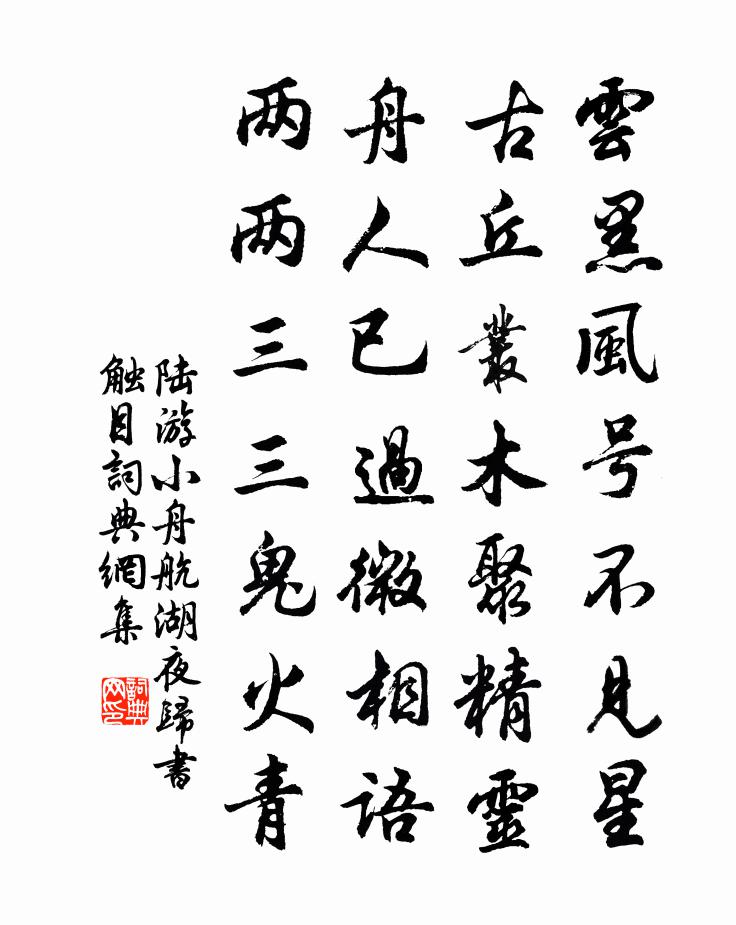 雲黑風号不見星
古丘叢木聚精靈
舟人已過微相語
两两三三鬼火青
陆游小舟航湖夜歸書
触目詞典網集
詞典
网印